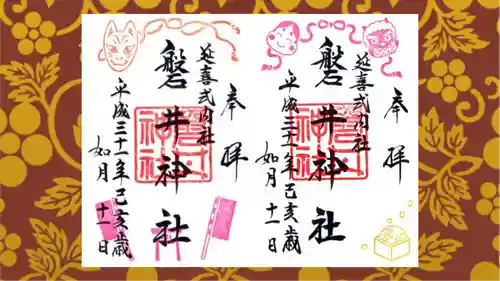 奉拝
延喜式内社
磐井神社
平成三十一年己亥歳
如月 十一日
奉拝
延喜式内社
磐井神社
平成三十一年己亥歳
如月 十一日